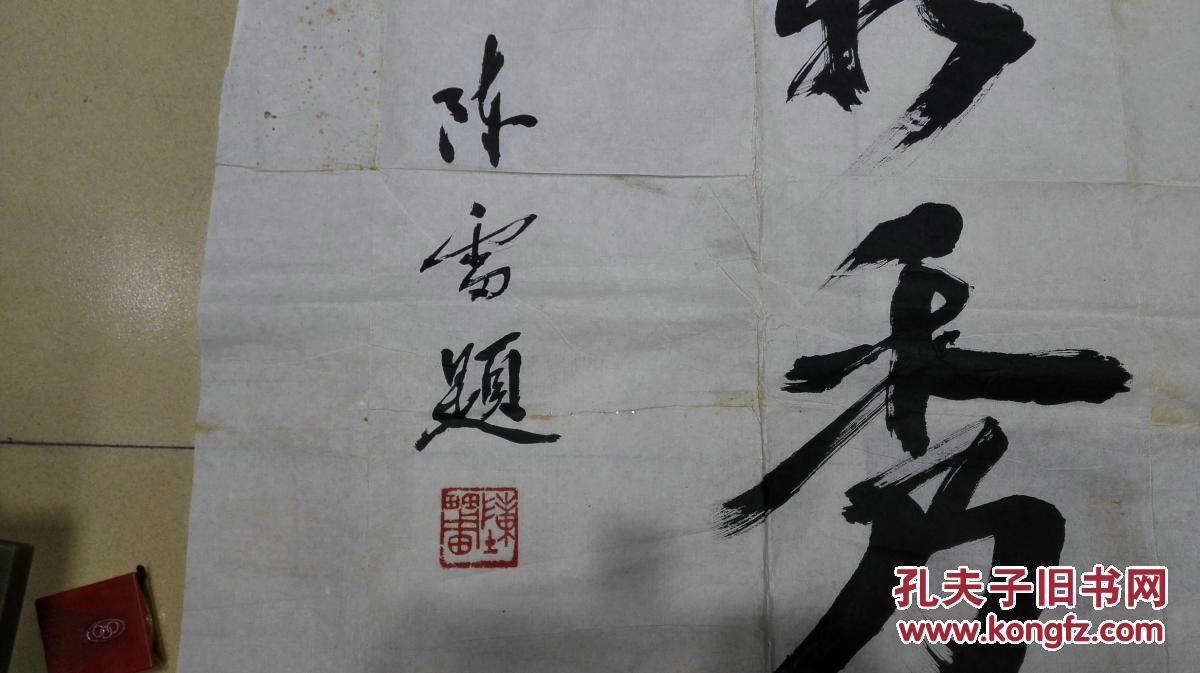 秀
陈雷题
陳雷
孔夫子旧书网
www.kongfz.com